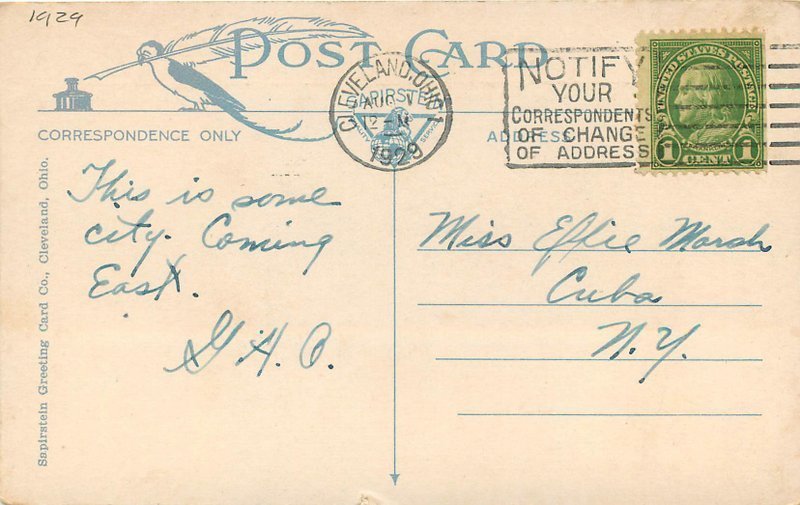 1929
POST CARD
CLEVELAND, OHIO 1
AUG
12-M
1929
SAPIRSTEIN
SERVICE
NOTIFY
YOUR
CORRESPONDENTS
OF CHANGE
OF ADDRESS
UNITED STATES POSTAGE
FRANKLIN
1 CENT 1
CORRESPONDENCE ONLY
ADDRESS
This is some
city. Coming
East.
G. H. O.
Miss Effie Marsh
Cuba
N.Y.
Sapirstein Greeting Card Co., Cleveland, Ohio.